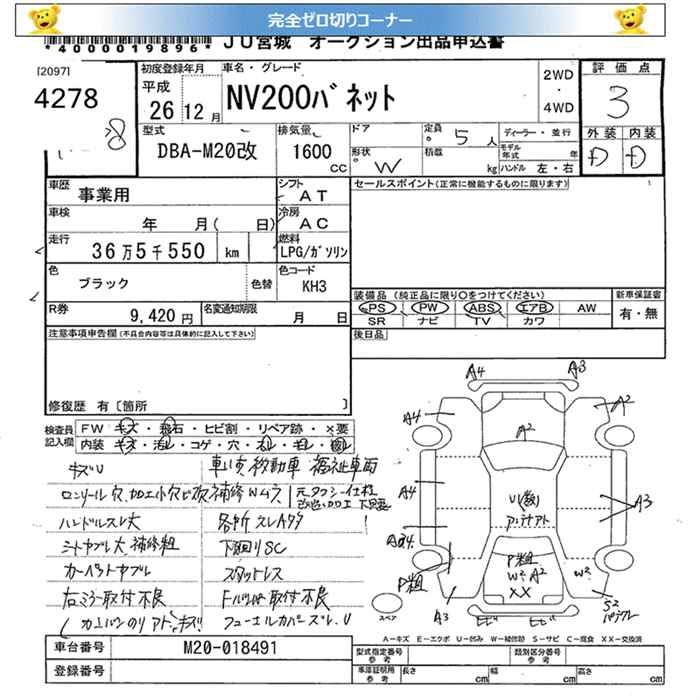 完全ゼロ切りコーナー
*4000019896*
JU宮城 オークション出品申込書
[2097]
4278
初度登録年月
平成
26 12 月
車名・グレード
NV200バネット
2WD
・
4WD
評価点
3
外装 内装
D D
型式
DBA-M20改
排気量
1600
cc
ドア
形状 W
定員 5 人
積載 kg
ディーラー・並行
モデル年式 年
ハンドル 左・右
車歴
事業用
シフト
AT
セールスポイント(正常に機能するものに限ります)
車検
年 月( 日)
冷房
AC
走行
36万5千550 km
燃料
LPG/ガソリン
色
ブラック
色替
色コード
KH3
装備品 (純正品に限り○をつけてください)
PS PW ABS エアB AW
SR ナビ TV カワ
新車保証書
有・無
R券
9,420 円
名変通知期限
月 日
後日品
注意事項申告欄(不具合内容等は具体的に記入して下さい)
修復歴 有〔箇所 〕
検査員
記入欄
FW キズ・飛石・ヒビ割・リペア跡・×要
内装 キズ・汚レ・コゲ・穴・スレ・モレ・
キズU
車いす移動車 福祉車両
補修Wムラ
元タクシー仕様
ハンドルスレ大
各所スレAタタ
シートヤブレ大、補修粗
下回りSC
カーペットヤブレ
スタットレス
右ミラー取付不良
Fバンパ取付不良
フューエルカバーズレ.U
A4
A3
A4
A2
A2
A4
U(数)
A3
P粗
P粗
W2 A2
XX
W2
スペア
A3
ヒビ
ヒビ
S2
A－キズ E－エクボ U－凹み W－補修跡 S－サビ C－腐食 XX－交換済
車台番号
M20-018491
登録番号
型式指定番号
参考
類別区分番号
参考
車庫証明用
参考
長さ cm
幅 cm
高さ cm